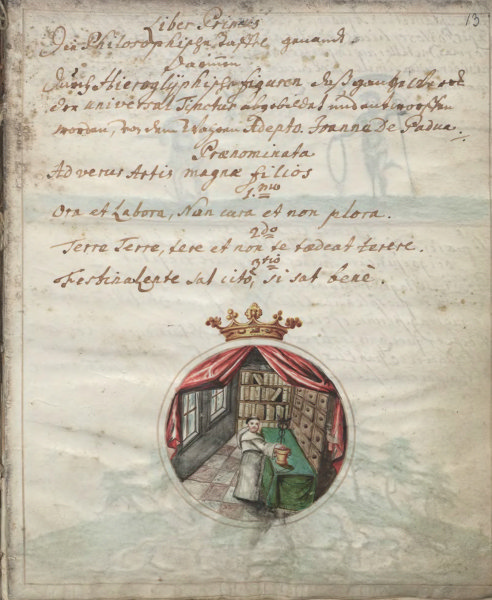 13
Liber Primus
Die Philosophische Taffel genandt
Daeinen
durch Hieroglyphische figuren deß gantze
der universal Tinctur abgebildet und
worden, von dem Adepto. Joanne De Padua.
Prænominata
Ad verus Artis magnæ filios
1.mo
Ora et Labora, Nam cura et non plora.
2do
Terra Terre, tere et non te tædeat terere.
3tio
Festina Lente sat citò, si sat benè.